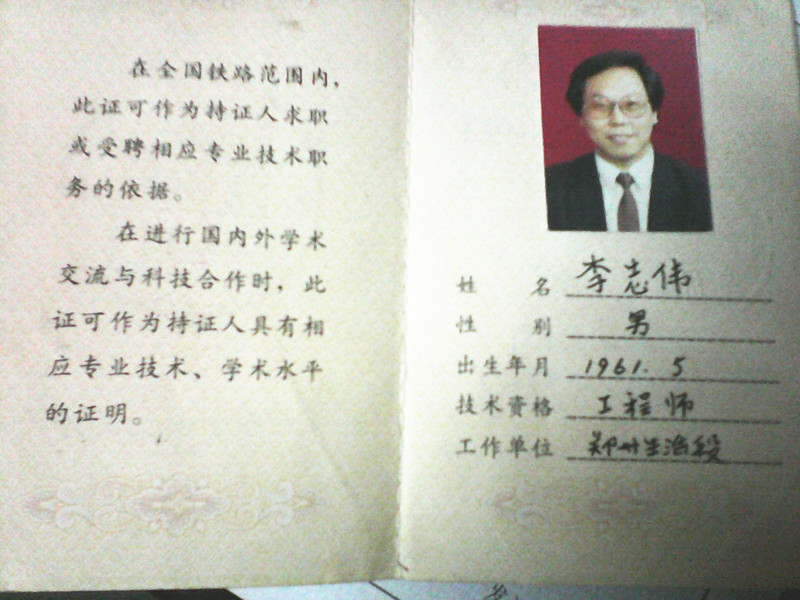 在全国铁路范围内，
此证可作为持证人求职
或受聘相应专业技术职
务的依据。
在进行国内外学术
交流与科技合作时，此
证可作为持证人具有相
应专业技术、学术水平
的证明。
姓 名 李志伟
性 别 男
出生年月 1961.5
技术资格 工程师
工作单位 郑州生活段